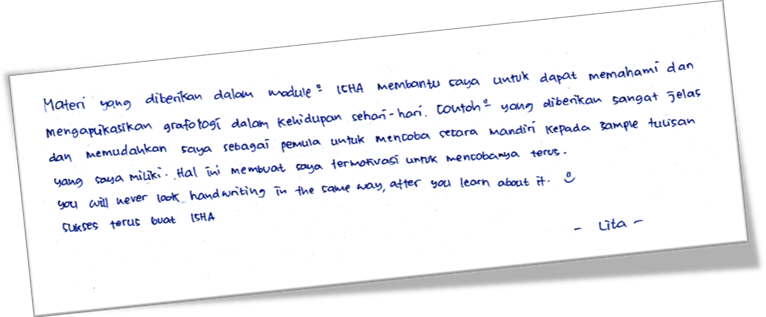 Materi yang diberikan dalam module² ISHA membantu saya untuk dapat memahami dan
mengaplikasikan grafologi dalam kehidupan sehari-hari. Contoh² yang diberikan sangat jelas
dan memudahkan saya sebagai pemula untuk mencoba secara mandiri kepada sample tulisan
yang saya miliki. Hal ini membuat saya termotivasi untuk mencobanya terus.
you will never look handwriting in the same way, after you learn about it. ☺
sukses terus buat ISHA
- Lita -